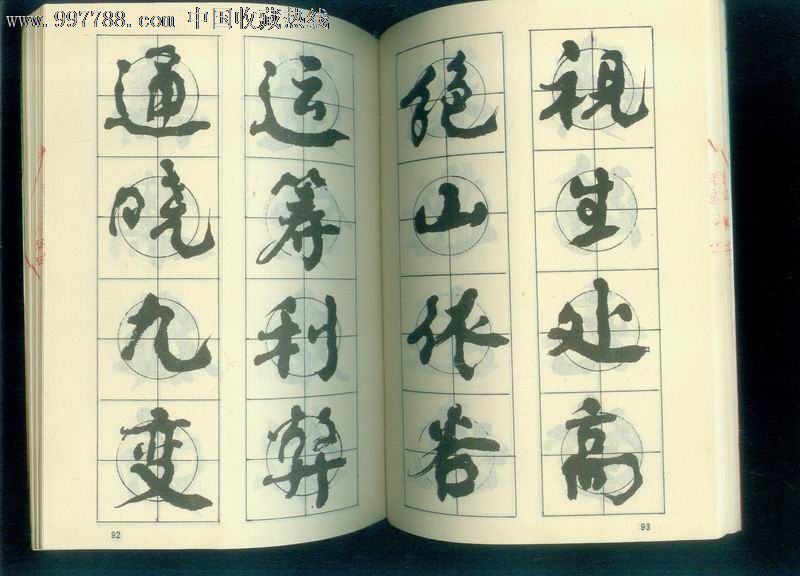 www.997788.com 中国收藏热线
通晓九变
运筹利弊
绝山依谷
视生处高
92
93